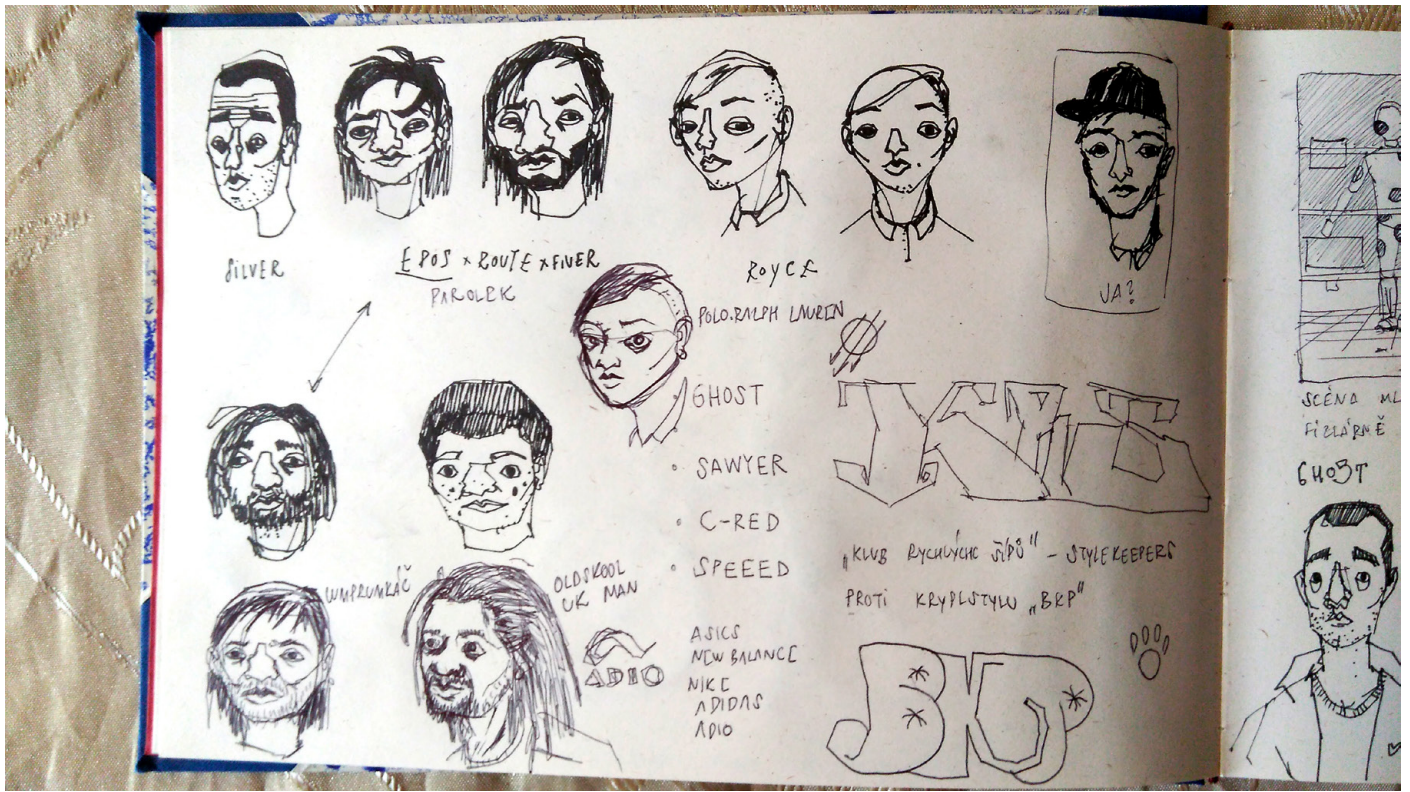 SILVER
EPOS x ROUTE x FIVER
PAROLEK
ROYCE
JA?
POLO.RALPH LAUREN
GHOST
• SAWYER
• C-RED
• SPEEED
UMPRUMKÁČ
OLDSKOOL
UK MAN
ADIO
ASICS
NEW BALANCE
NIKE
ADIDAS
ADIO
„KLUB RYCHLÝCHC ŠÍPŮ" - STYLEKEEPERS
PROTI KRYPLSTYLU „BKP"
SCÉNA ML
FIZLÁRNĚ
GHO3T